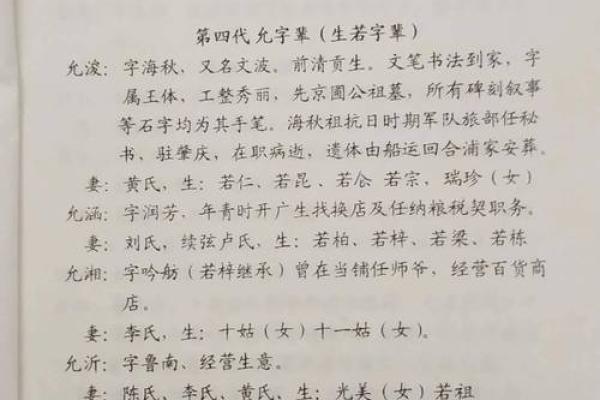 第四代允字辈（生若字辈）
允浚：字海秋，又名文波。前清贡生。文笔书法到家，字
属王体，工整秀丽，先京圃公祖墓，所有碑刻叙事
等石字均为其手笔。海秋祖抗日时期军队旅部任秘
书，驻肇庆，在职病逝，遗体由船运回合浦家安葬。
妻：黄氏，生：若仁、若昆、若公 若宗，瑞珍（女）
允涵：字润芳、年青时开广生找换店及任纳粮税契职务。
妻：刘氏，续弦卢氏，生：若柏、若梓、若梁、若栋
允湘：字吟舫（若梓继承）曾在当铺任师爷，经营百货商
店。
妻：李氏，生：十姑（女）十一姑（女）。
允沂：字鲁南、经营生意。
妻：陈氏，李氏，黄氏，生：光美（女）若祖